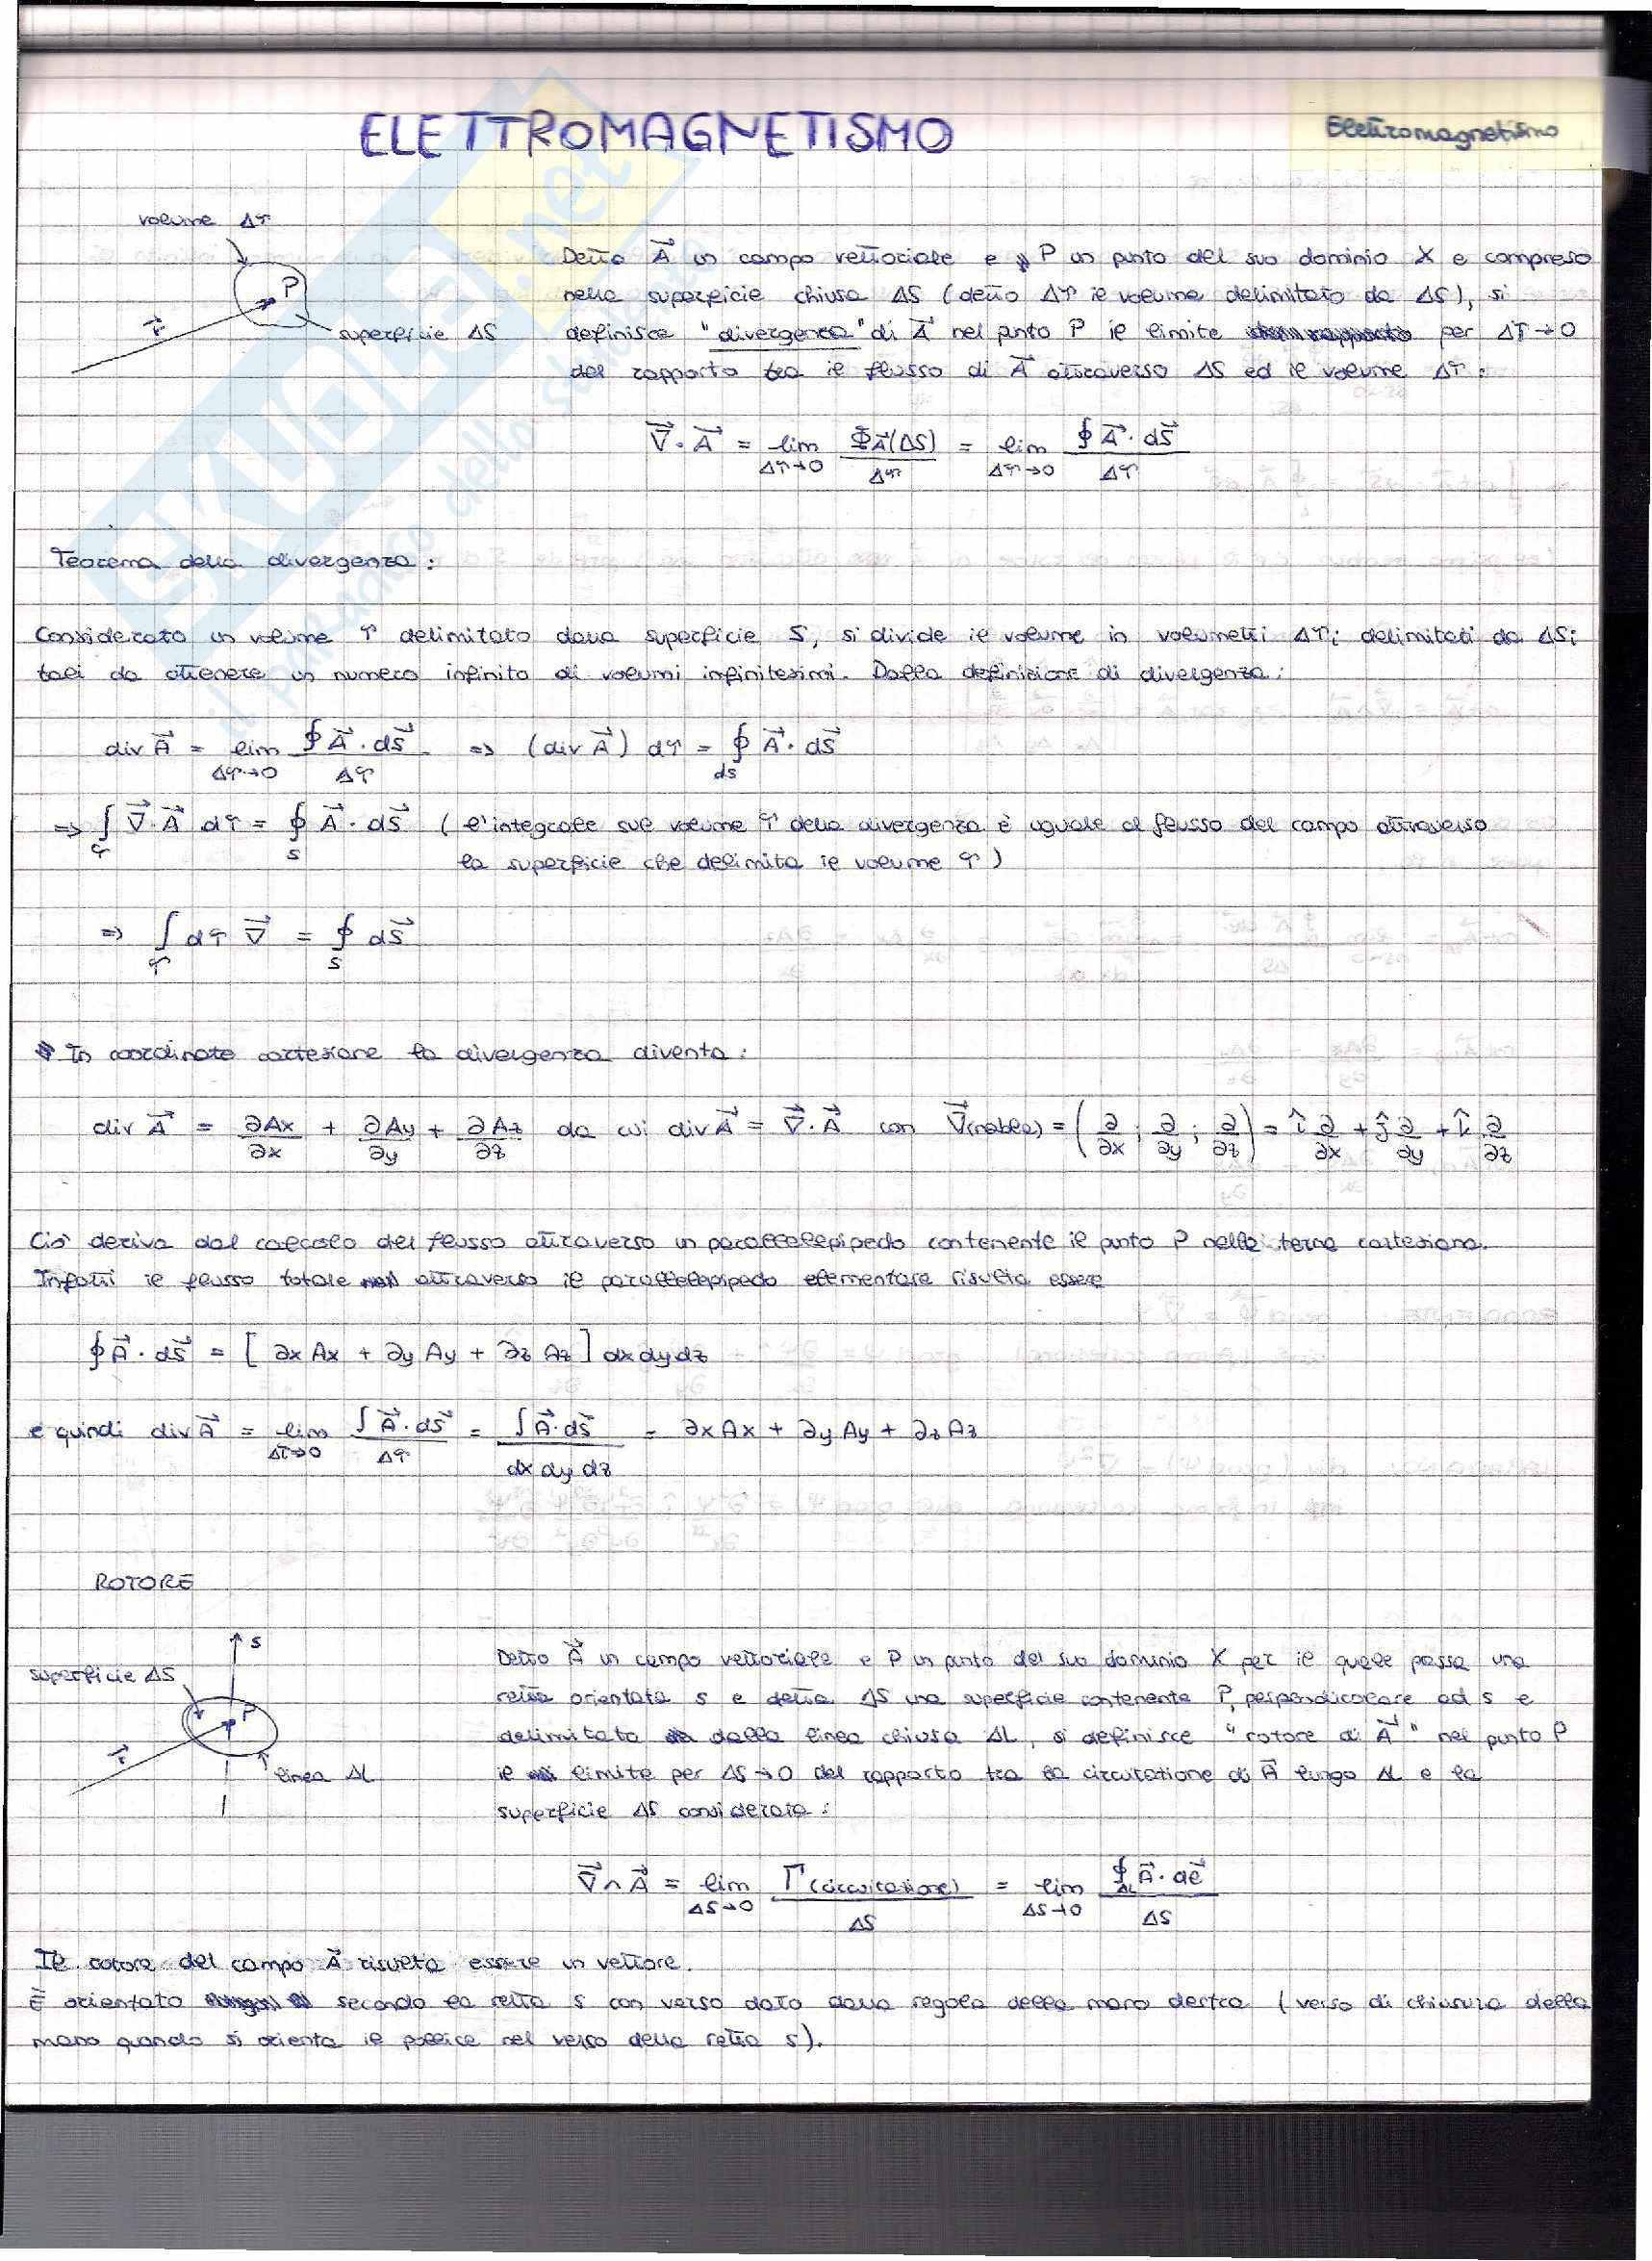 ELETTROMAGNETISMO
Elettromagnetismo
volume Δτ
P
r
superficie ΔS
Detto A⃗ un campo vettoriale e P un punto del suo dominio X e compreso
nella superficie chiusa ΔS (detto Δτ il volume delimitato da ΔS), si
definisce "divergenza" di A⃗ nel punto P il limite per Δτ→0
del rapporto tra il flusso di A⃗ attraverso ΔS ed il volume Δτ:
∇⃗·A⃗ = lim Δτ→0 ΦA⃗(ΔS)/Δτ = lim Δτ→0 ∮A⃗·dS⃗/Δτ
Teorema della divergenza:
Considerato un volume τ delimitato dalla superficie S, si divide il volume in volumetti Δτi delimitati da ΔSi
tali da ottenere un numero infinito di volumi infinitesimi. Dalla definizione di divergenza:
div A⃗ = lim Δτ→0 ∮A⃗·dS⃗/Δτ => (div A⃗) dτ = ∮dS A⃗·dS⃗
=> ∫τ ∇⃗·A⃗ dτ = ∮S A⃗·dS⃗ (l'integrale sul volume τ della divergenza è uguale al flusso del campo attraverso
la superficie che delimita il volume τ)
=> ∫τ dτ ∇⃗ = ∮S dS⃗
In coordinate cartesiane la divergenza diventa:
div A⃗ = ∂Ax/∂x + ∂Ay/∂y + ∂Az/∂z da cui div A⃗ = ∇⃗·A⃗ con ∇⃗(nabla) = (∂/∂x ; ∂/∂y ; ∂/∂z) = î ∂/∂x + ĵ ∂/∂y + k̂ ∂/∂z
Ciò deriva dal calcolo del flusso attraverso un parallelepipedo contenente il punto P nella terna cartesiana.
Infatti il flusso totale attraverso il parallelepipedo elementare risulta essere
∮A⃗·dS⃗ = [∂x Ax + ∂y Ay + ∂z Az] dx dy dz
e quindi div A⃗ = lim Δτ→0 ∫A⃗·dS⃗/Δτ = ∫A⃗·dS⃗/dx dy dz = ∂x Ax + ∂y Ay + ∂z Az
ROTORE
s
superficie ΔS
P
r
linea ΔL
Detto A⃗ un campo vettoriale e P un punto del suo dominio X per il quale passa una
retta orientata s e detta ΔS una superficie contenente P, perpendicolare ad s e
delimitata dalla linea chiusa ΔL, si definisce "rotore di A⃗" nel punto P
il limite per ΔS→0 del rapporto tra la circuitazione di A⃗ lungo ΔL e la
superficie ΔS considerata:
∇⃗∧A⃗ = lim ΔS→0 Γ(circuitazione)/ΔS = lim ΔS→0 ∮ΔL A⃗·dl⃗/ΔS
Il rotore del campo A⃗ risulta essere un vettore.
È orientato secondo la retta s con verso dato dalla regola della mano destra (verso di chiusura della
mano quando si orienta il pollice nel verso della retta s).